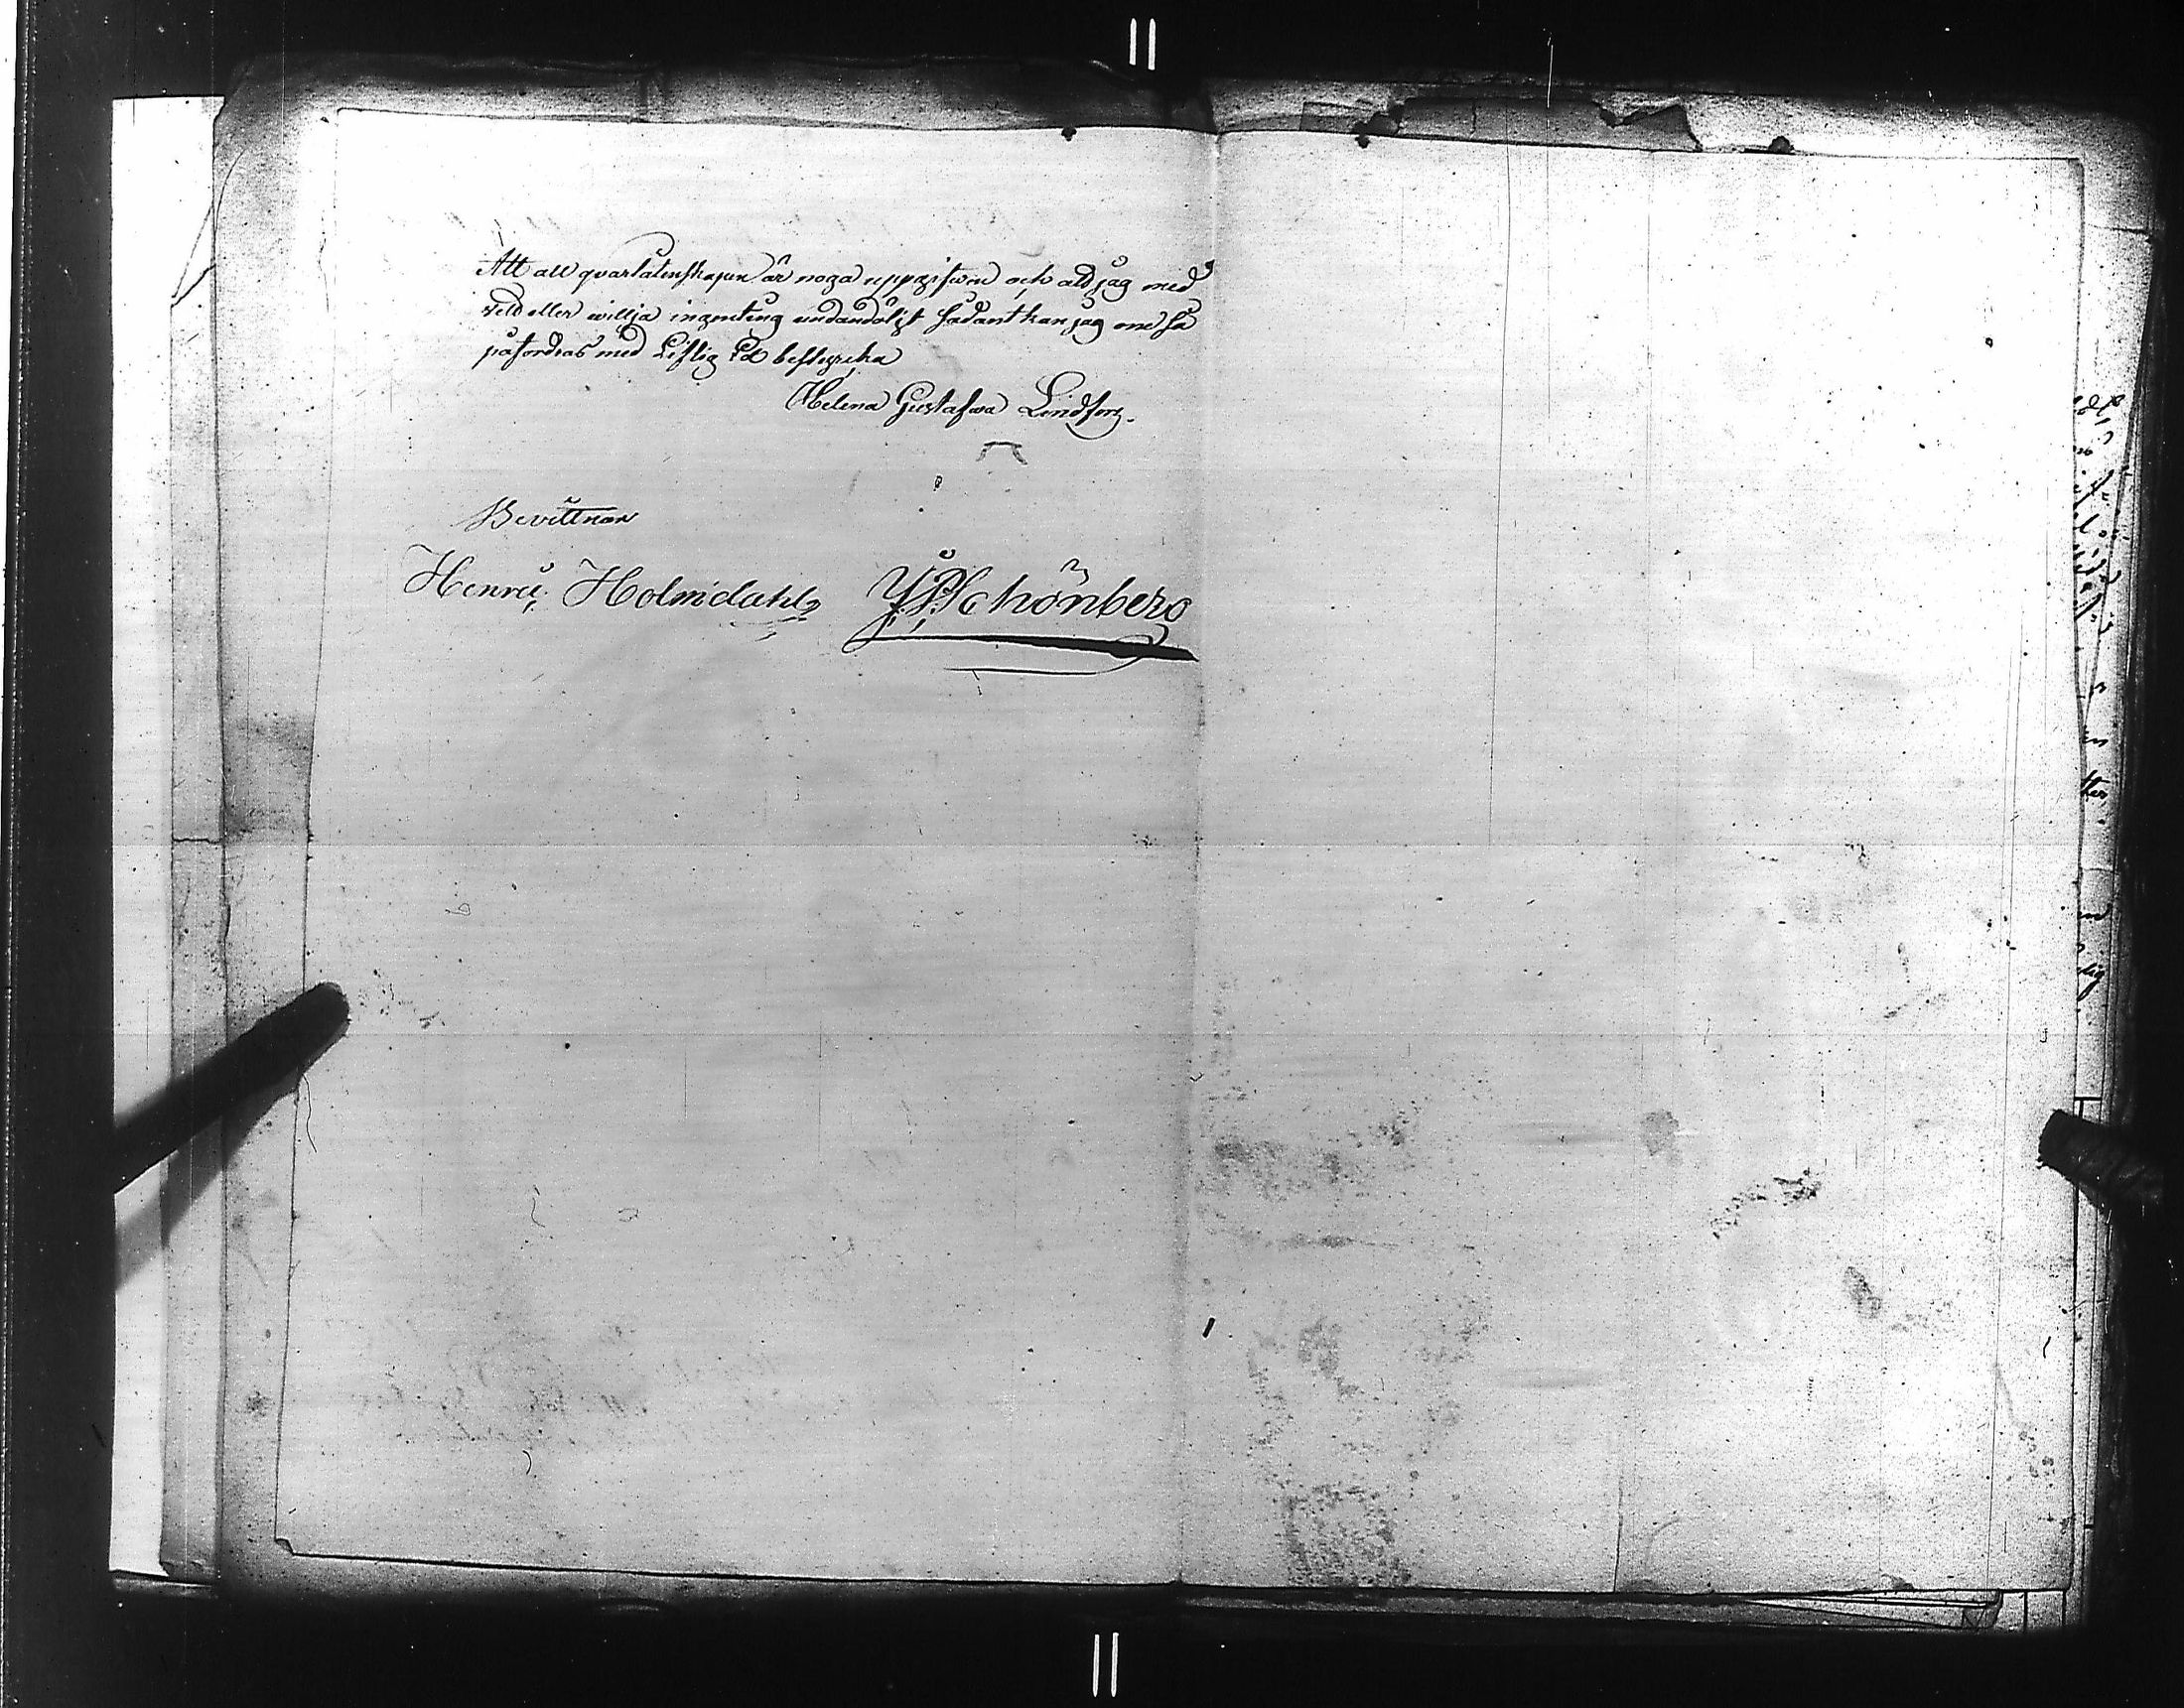 Att all qvarlåtenskapen är noga uppgifwen och att jag med
vett eller willja ingenting undandölgt sådant kan jag om så
påfordras med Liflig Ed bestyrcka
Helena Gustafwa Lindfors.
Bevittnar
Henric Holmdahl Schönberg